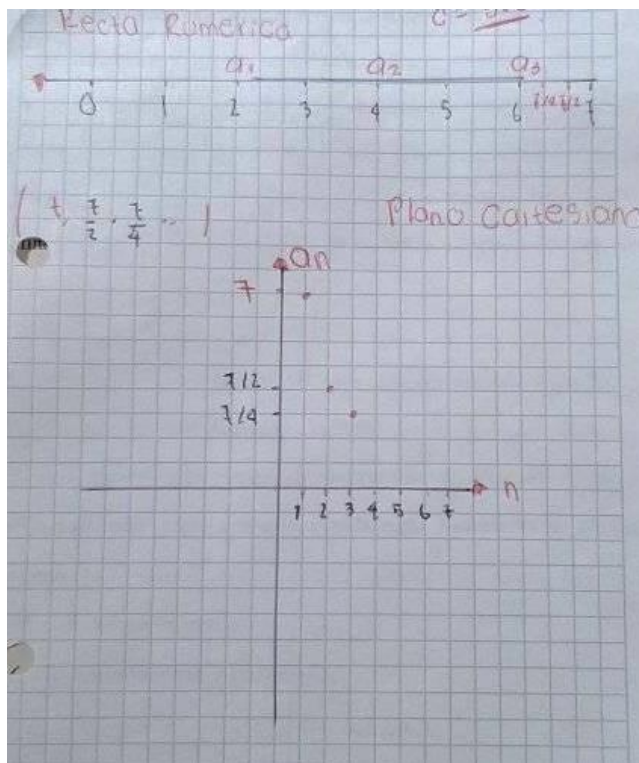 Recta Rumerica
a1 a2 a3
0 1 2 3 4 5 6 7/2 7
7/2, 7/4 ..
Plano Cartesiano
an
7
7/2
7/4
n
1 2 3 4 5 6 7